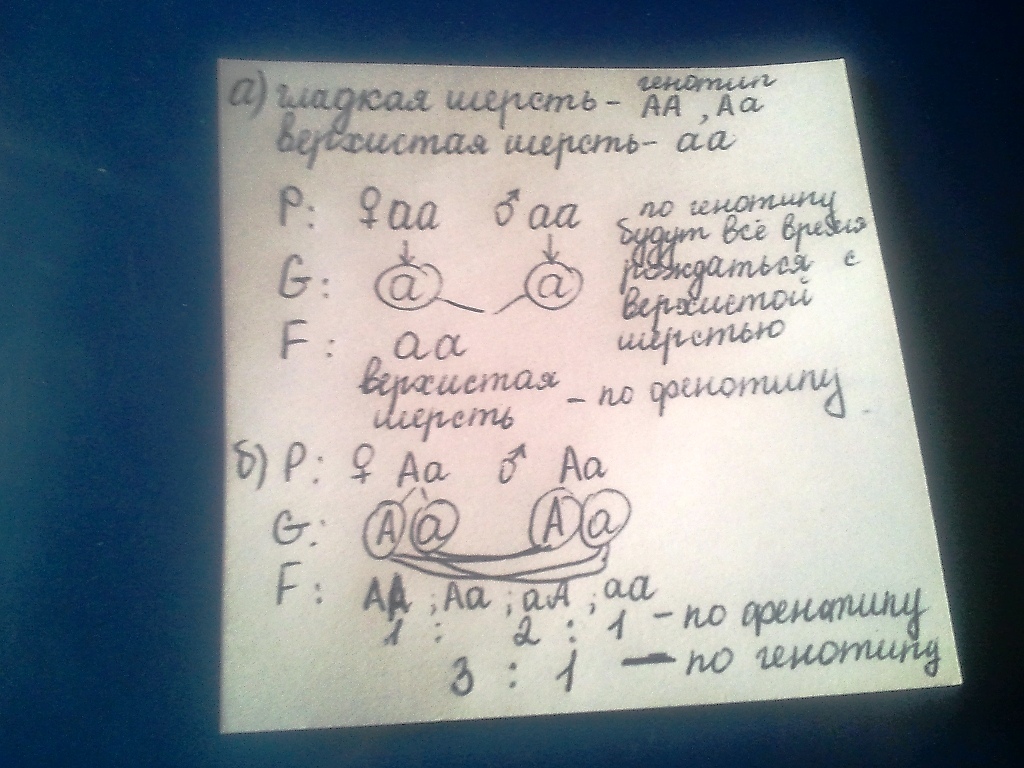 а) гладкая шерсть - генотип AA, Aa
верхистая шерсть - aa
P: ♀ aa ♂ aa
по генотипу
будут всё время
рождаться с
верхистой
шерстью
G: a a
F: aa
верхистая
шерсть - по фенотипу
б) P: ♀ Aa ♂ Aa
G: A a A a
F: AA ; Aa ; aA ; aa
1 : 2 : 1 - по фенотипу
3 : 1 - по генотипу